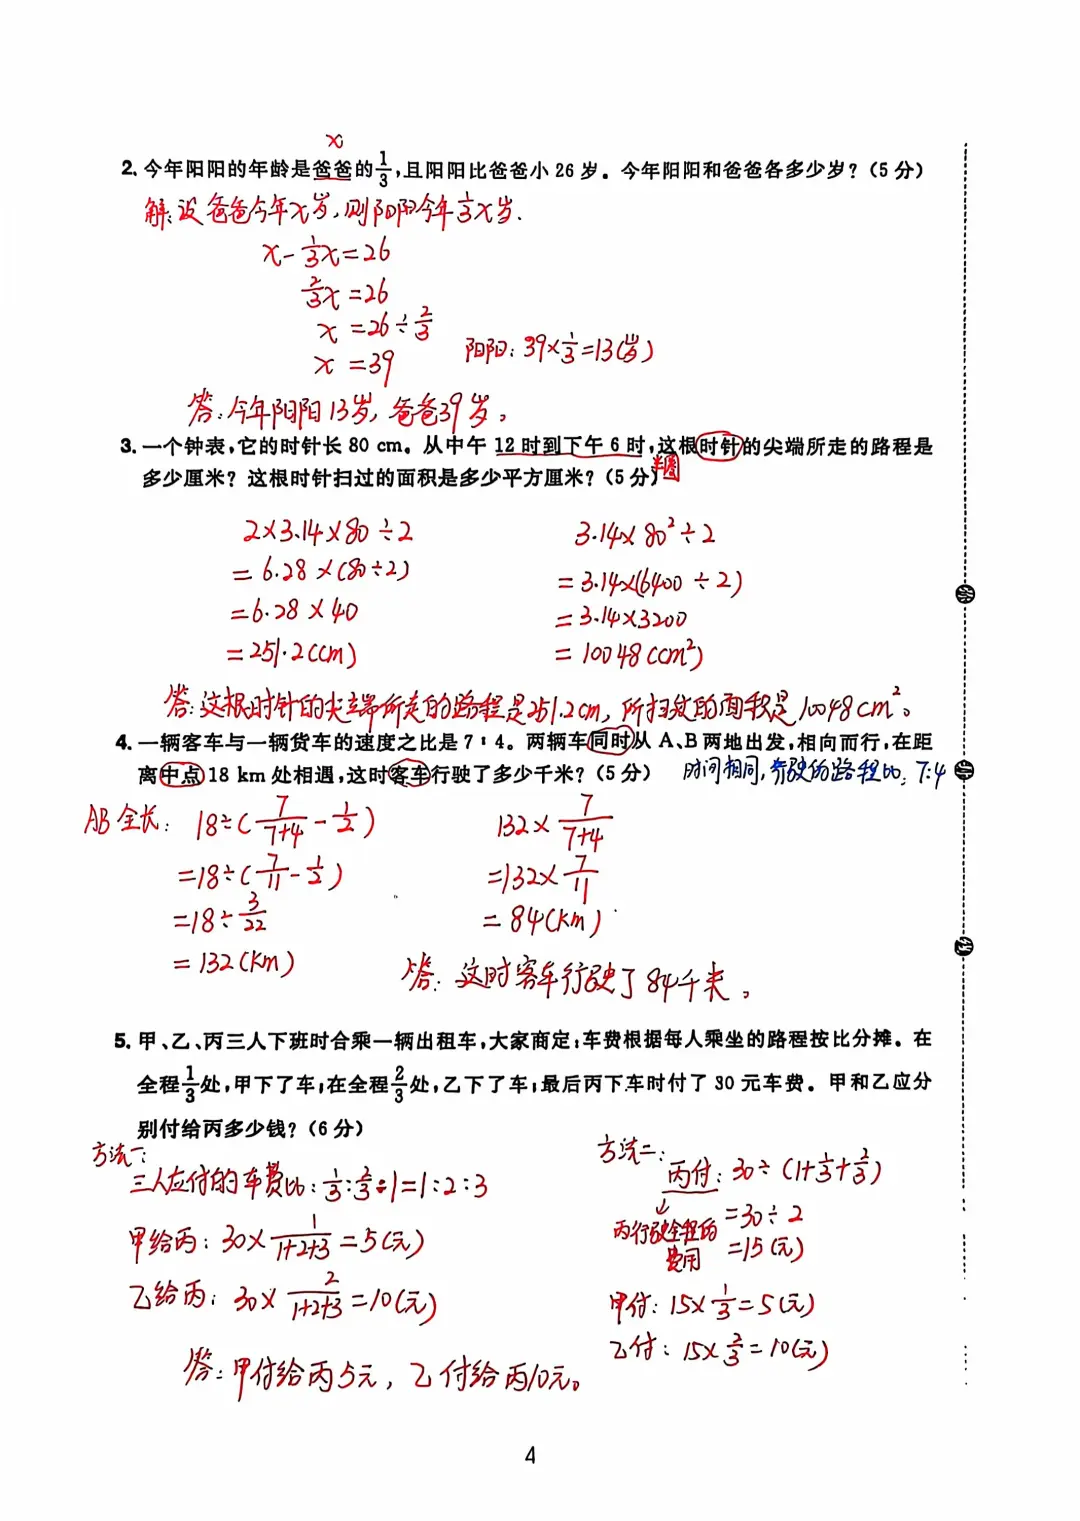 x
2. 今年阳阳的年龄是爸爸的1/3,且阳阳比爸爸小 26 岁。今年阳阳和爸爸各多少岁?(5 分)
解:设爸爸今年x岁,则阳阳今年1/3x岁.
x-1/3x=26
2/3x=26
x=26÷2/3
x=39
阳阳:39×1/3=13(岁)
答:今年阳阳13岁,爸爸39岁。
3. 一个钟表,它的时针长 80 cm。从中午 12 时到下午 6 时,这根时针的尖端所走的路程是
半圆
多少厘米?这根时针扫过的面积是多少平方厘米?(5 分)
2×3.14×80÷2
=6.28×(80÷2)
=6.28×40
=251.2(cm)
3.14×80²÷2
=3.14×(6400÷2)
=3.14×3200
=10048(cm²)
答:这根时针的尖端所走的路程是251.2cm,所扫过的面积是10048cm²。
4. 一辆客车与一辆货车的速度之比是 7∶4。两辆车同时从 A、B 两地出发,相向而行,在距
离中点 18 km 处相遇,这时客车行驶了多少千米?(5 分)
时间相同,行驶的路程比:7:4
AB全长:18÷(7/(7+4)-1/2)
=18÷(7/11-1/2)
=18÷3/22
=132(km)
132×7/(7+4)
=132×7/11
=84(km)
答:这时客车行驶了84千米。
5. 甲、乙、丙三人下班时合乘一辆出租车,大家商定:车费根据每人乘坐的路程按比分摊。在
全程1/3处,甲下了车;在全程2/3处,乙下了车;最后丙下车时付了 30 元车费。甲和乙应分
别付给丙多少钱?(6 分)
方法一:
三人应付的车费比:1/3:2/3:1=1:2:3
甲给丙:30×1/(1+2+3)=5(元)
乙给丙:30×2/(1+2+3)=10(元)
方法二:
丙付:30÷(1+1/3+2/3)
=30÷2
=15(元)
丙行驶全程的
费用
甲付:15×1/3=5(元)
乙付:15×2/3=10(元)
答:甲付给丙5元,乙付给丙10元。
4